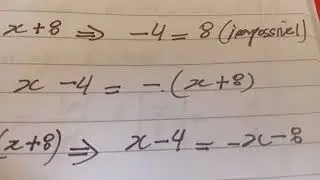 x+8 ⇒ -4 = 8 (impossível)
x -4 = -(x+8)
(x+8) ⇒ x-4 = -x-8